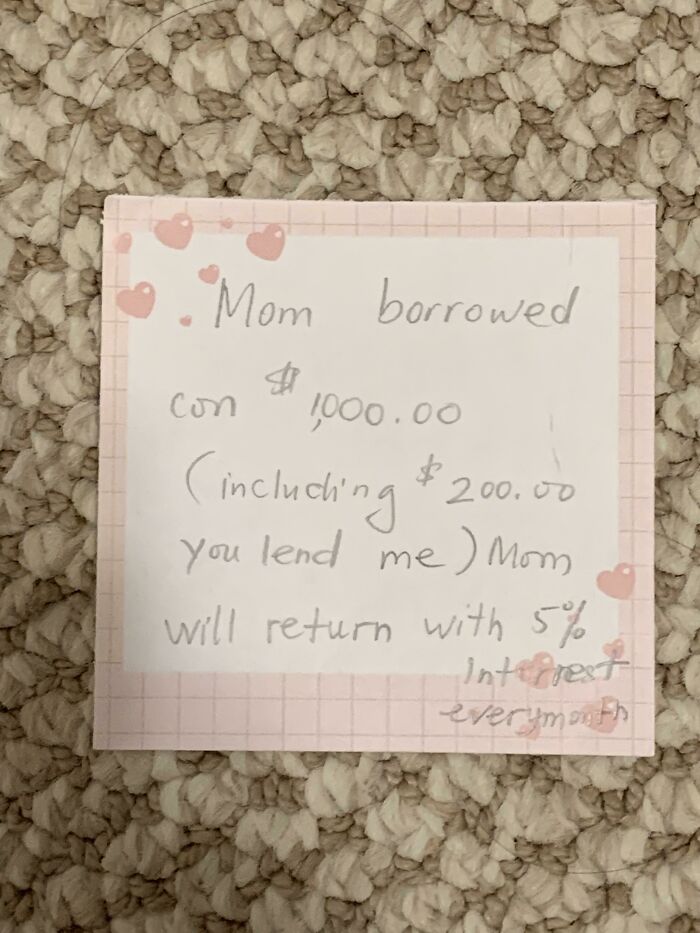 Mom borrowed
con $1,000.00
(including $200.00
you lend me) Mom
will return with 5%
Interrest
everymonth